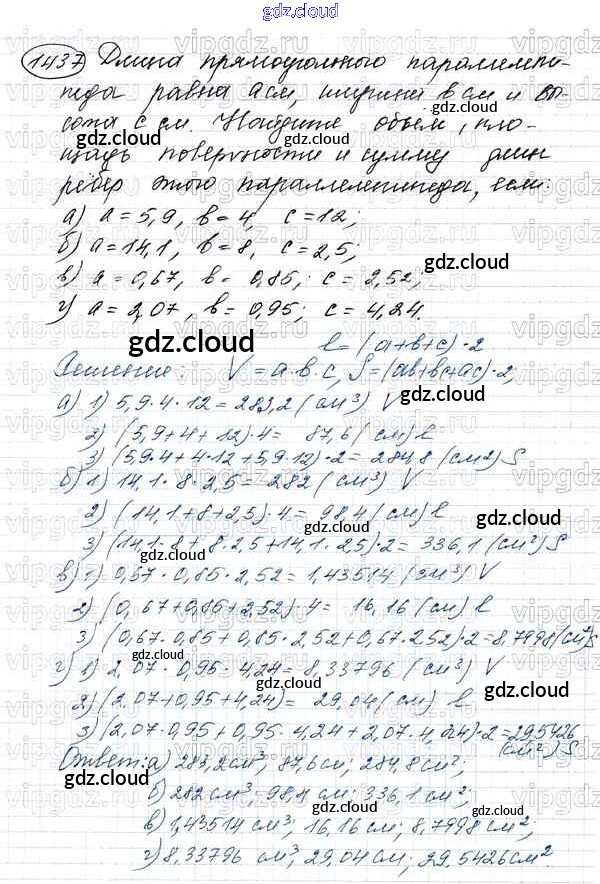 gdz.cloud
1437 Длина прямоугольного параллелепи-
педа равна a см, ширина в см и вы-
сота с см. Найдите объем, пло-
щадь поверхности и сумму длин
ребер этого параллелепипеда, если:
а) a = 5,9, в = 4, с = 12;
б) a = 14,1, в = 8, с = 2,5;
в) a = 0,67, в = 0,85; с = 2,52;
г) a = 2,07, в = 0,95; с = 4,24.
gdz.cloud
gdz.cloud
l = (a+в+с)·2
Решение: V = a·в·с, S = (aв+вс+aс)·2,
gdz.cloud
а) 1) 5,9·4·12 = 283,2 (см³) V
2) (5,9+4+12)·4 = 87,6 (см) l
3) (5,9·4+4·12+5,9·12)·2 = 284,8 (см2) S
gdz.cloud
б) 1) 14,1·8·2,5 = 282 (см³) V
2) (14,1+8+2,5)·4 = 98,4 (см) l
gdz.cloud
gdz.cloud
3) (14,1·8+8·2,5+14,1·2,5)·2 = 336,1 (см²) S
gdz.cloud
в) 1) 0,67·0,85·2,52 = 1,43514 (см³) V
2) (0,67+0,85+2,52)·4 = 16,16 (см) l
3) (0,67·0,85+0,85·2,52+0,67·2,52)·2 = 8,7998 (см²) S
г) 1) 2,07·0,95·4,24 = 8,33796 (см³) V
gdz.cloud
gdz.cloud
2) (2,07+0,95+4,24) = 29,04 (см) l
3) (2,07·0,95+0,95·4,24+2,07·4,24)·2 = 29,5426
(см²) S
Ответ: а) 283,2 см³; 87,6 см; 284,8 см²;
б) 282 см³; 98,4 см; 336,1 см²;
gdz.cloud
gdz.cloud
в) 1,43514 см³; 16,16 см; 8,7998 см²;
г) 8,33796 см³; 29,04 см; 29,5426 см².
gdz.cloud